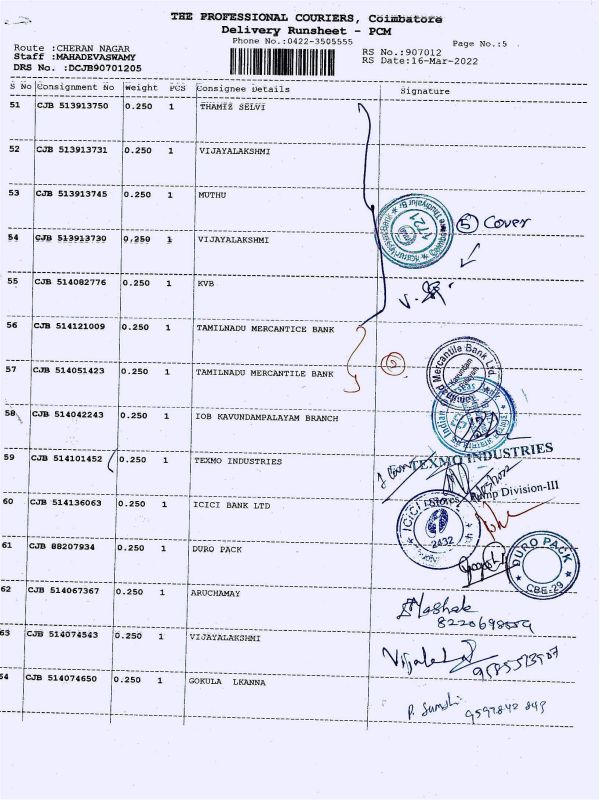 THE PROFESSIONAL COURIERS, Coimbatore
Delivery Runsheet - PCM
Phone No.:0422-3505555
Page No.:5
Route :CHERAN NAGAR
RS No.:907012
Staff :MAHADEVASWAMY
RS Date:16-Mar-2022
DRS No. :DCJB90701205
S No Consignment No Weight PCS Consignee Details Signature
51 CJB 513913750 0.250 1 THAMIZ SELVI
52 CJB 513913731 0.250 1 VIJAYALAKSHMI
53 CJB 513913745 0.250 1 MUTHU
1721
5 Cover
54 CJB 513913730 0.250 1 VIJAYALAKSHMI
55 CJB 514082776 0.250 1 KVB
56 CJB 514121009 0.250 1 TAMILNADU MERCANTICE BANK
57 CJB 514051423 0.250 1 TAMILNADU MERCANTILE BANK
Mercantile Bank Ltd.
58 CJB 514042243 0.250 1 IOB KAVUNDAMPALAYAM BRANCH
Indian
59 CJB 514101452 0.250 1 TEXMO INDUSTRIES
TEXMO INDUSTRIES
Stores Pump Division-III
60 CJB 514136063 0.250 1 ICICI BANK LTD
ICICI
2432
61 CJB 88207934 0.250 1 DURO PACK
DURO PACK
CBE-29
62 CJB 514067367 0.250 1 ARUCHAMAY
63 CJB 514074543 0.250 1 VIJAYALAKSHMI
54 CJB 514074650 0.250 1 GOKULA LKANNA